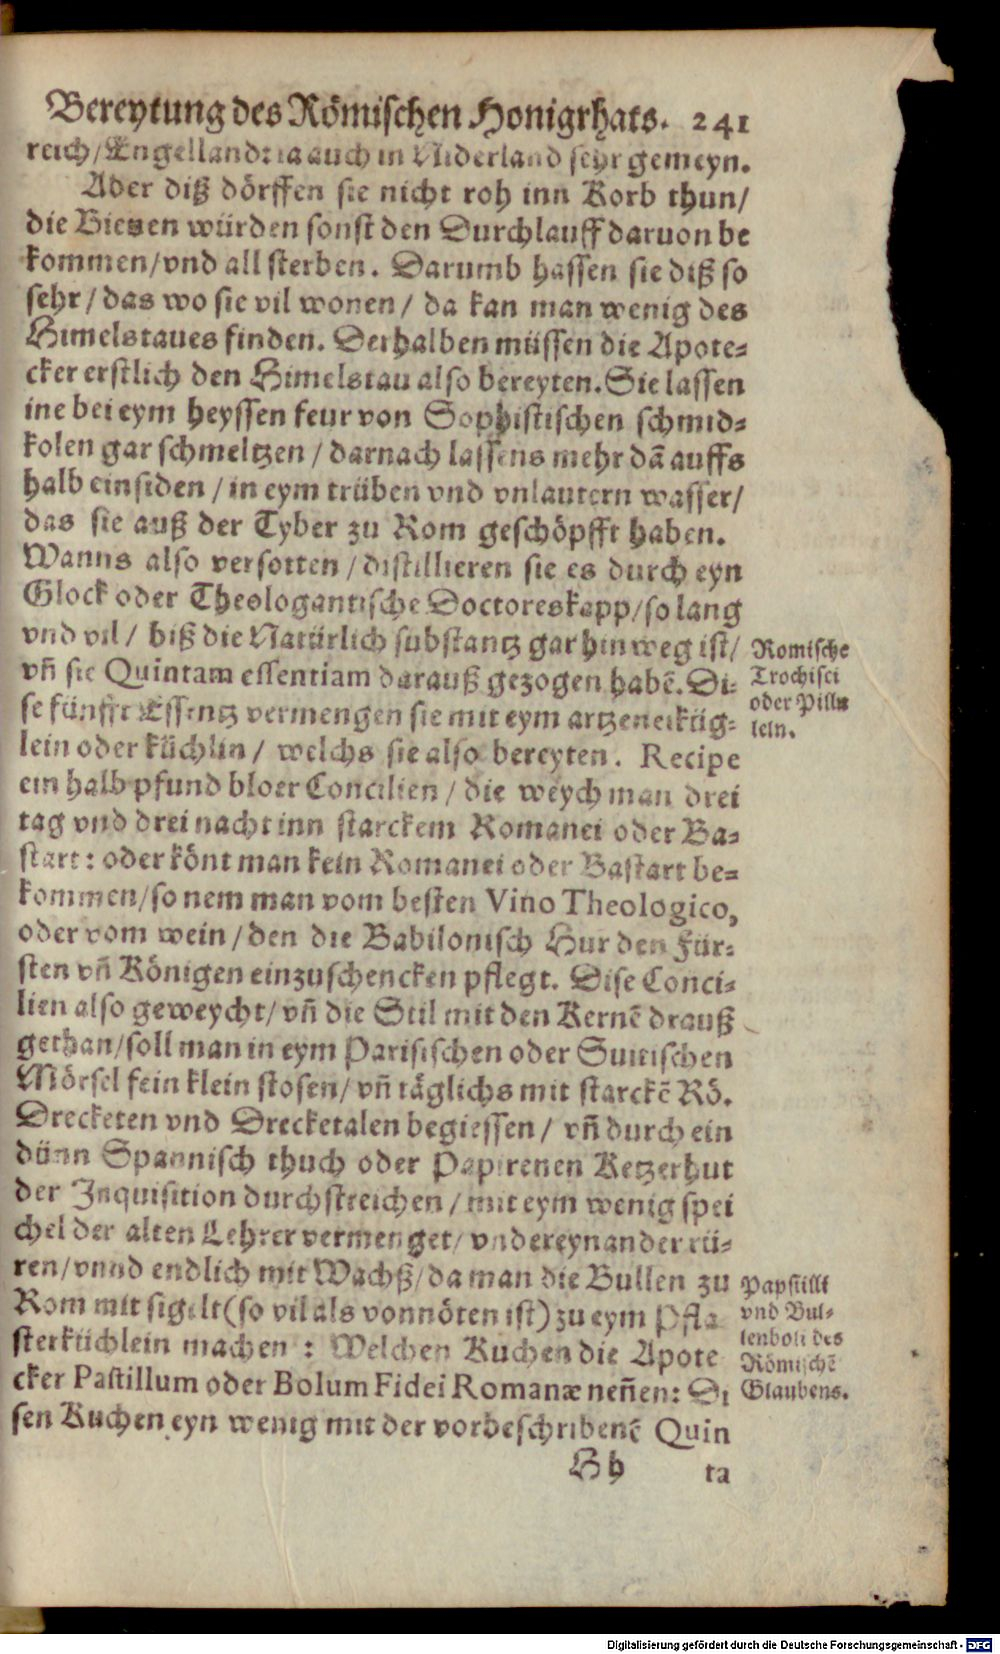 Bereytung des Römischen Honigrhats. 241
reich/Engelland: ia auch in Niderland sehr gemeyn.
Aber diß dörffen sie nicht roh inn Korb thun/
die Bienen würden sonst den Durchlauff daruon be
kommen/vnd all sterben. Darumb hassen sie diß so
sehr/das wo sie vil wonen/ da kan man wenig des
Himelstaues finden. Derhalben müssen die Apote-
cker erstlich den Himelstau also bereyten. Sie lassen
ine bei eym heyssen feur von Sophistischen schmid-
kolen gar schmeltzen/darnach lassens mehr dā auffs
halb einsiden/in eym trüben vnd vnlautern wasser/
das sie auß der Tyber zu Rom geschöpfft haben.
Wanns also versotten/distillieren sie es durch eyn
Glock oder Theologantische Doctoreskapp/so lang
vnd vil/ biß die Natürlich substantz gar hinweg ist/
vñ sie Quintam essentiam darauß gezogen habē. Di-
se fünfft Essentz vermengen sie mit eym artzeneiküg-
lein oder küchlin/ welchs sie also bereyten. Recipe
ein halb pfund bloer Concilien/die weych man drei
tag vnd drei nacht inn starckem Romanei oder Ba-
start: oder könt man kein Romanei oder Bastart be-
kommen/so nem man vom besten Vino Theologico,
oder vom wein/den die Babilonisch Hur den Für-
sten vñ Königen einzuschencken pflegt. Dise Conci-
lien also geweycht/vñ die Stil mit den Kernē drauß
gethan/soll man in eym Parisischen oder Suitischen
Mörsel fein klein stosen/vñ täglichs mit starckē Rö.
Drecketen vnd Drecketalen begiessen/ vñ durch ein
dünn Spannisch thuch oder Papirenen Ketzerhut
der Inquisition durchstreichen/mit eym wenig spei
chel der alten Lehrer vermenget/vndereynander rü-
ren/vnnd endlich mit Wachß/da man die Bullen zu
Rom mit sigelt(so vil als vonnöten ist)zu eym Pfla
sterküchlein machen: Welchen Kuchen die Apote
cker Pastillum oder Bolum Fidei Romanæ neñen: Di
sen Kuchen eyn wenig mit der vorbeschribenē Quin
Hh ta
Romische
Trochisci
oder Pilln
lein.
Papstilli
vnd Bul-
lenboli des
Römischē
Glaubens.
Digitalisierung gefördert durch die Deutsche Forschungsgemeinschaft - DFG